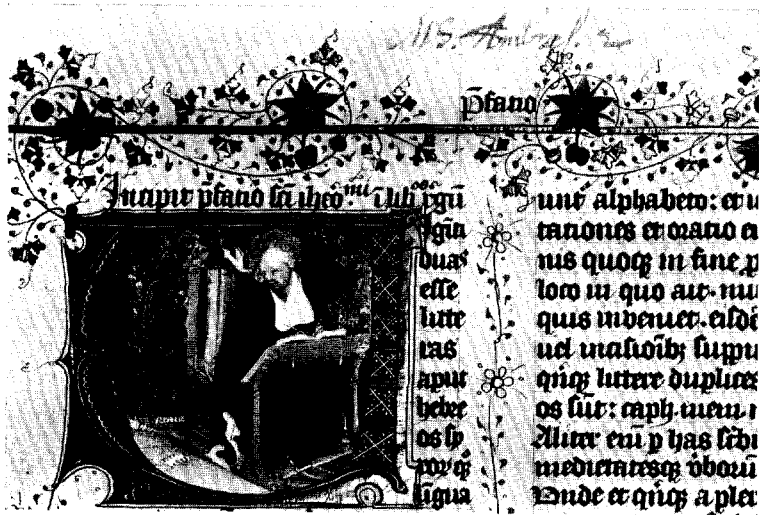 MS.
p̄fatio
Incipit p̄fatio sc̄i iheōmi ī libos rgū
igīti
duas
esse
litte
ras
aput
hebre
os sy
rorqȝ
ligua
unt alphabeto: et u
tationes et oratio ei
nis quoqȝ in fine p
loco in quo ait. nu
quis inveniet. eisdē
uel incisioībȝ suppu
qn̄qȝ littere duplices
os sūt: caph. mem n
Aliter enī p has scbu
medietatesqȝ vboru
Unde et qn̄qȝ a pler